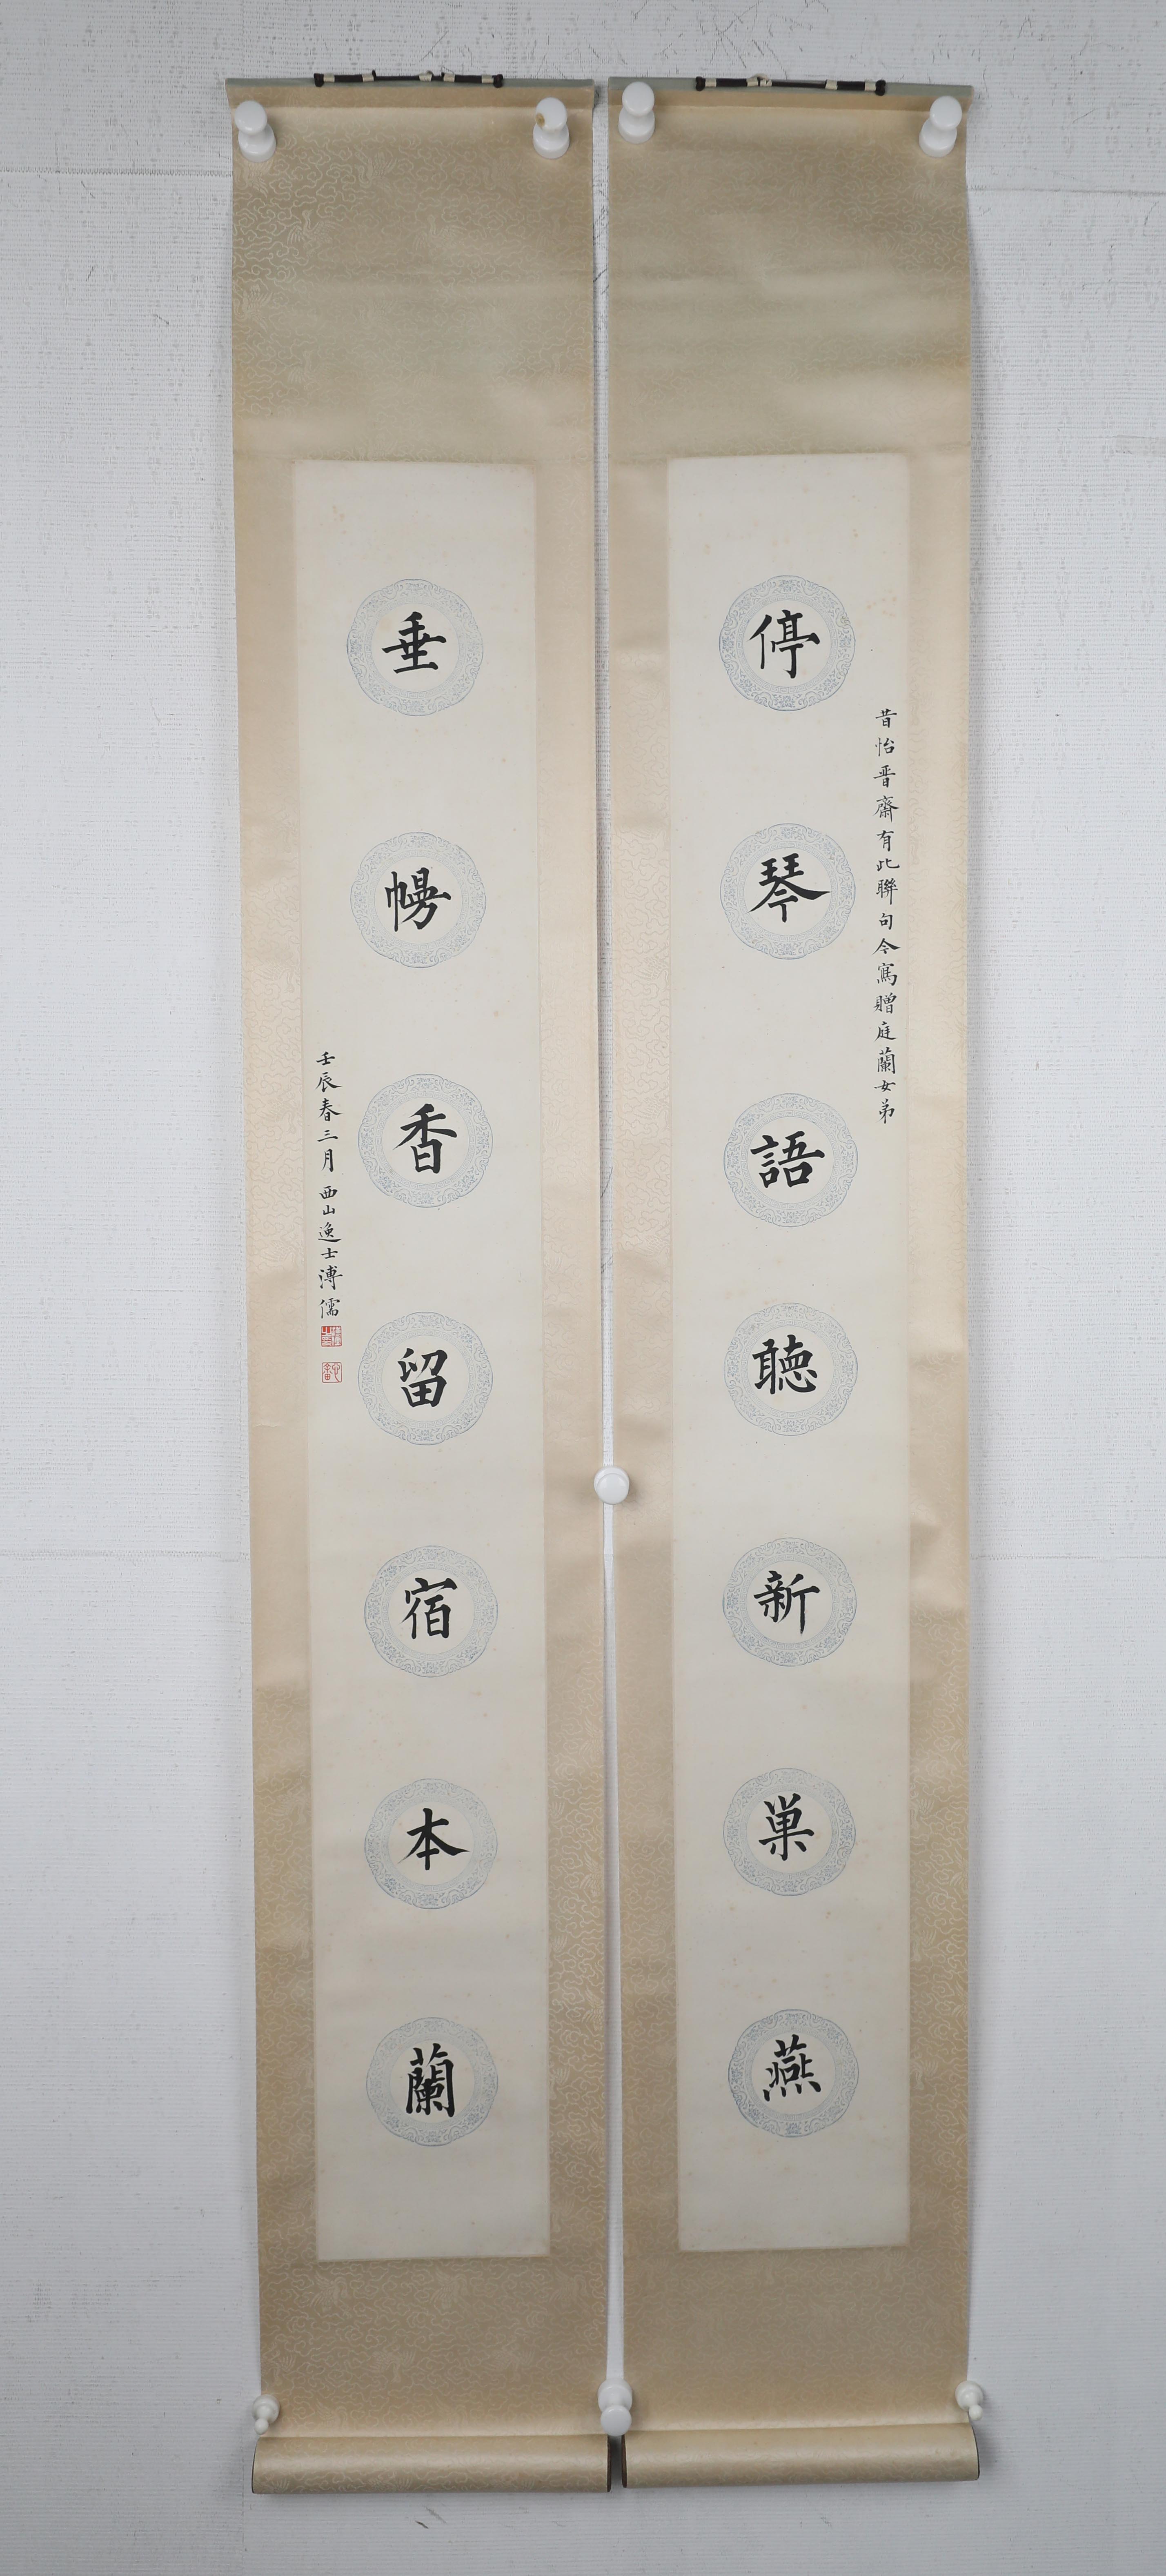 停琴語聴新巣燕
昔怡晋齋有此聯句今寫贈庭蘭女弟
垂幌香留宿本蘭
壬辰春三月西山逸士溥儒